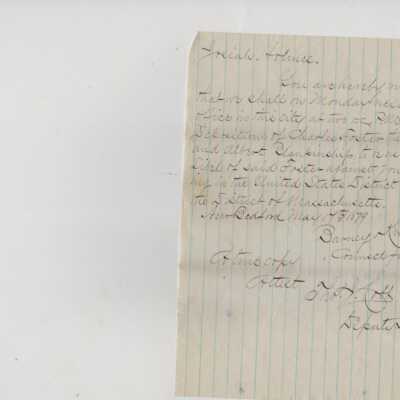 Josiah Holmes.
You are hereby
that we shall on Monday next
office in the City at two o'c
Depositions of Charles Foster
and Albert Blankinship to be
libel of said Foster against
in the United States District
the District of Massachusetts.
New Bedford May 17th 1879
Barney
Counsel
A true copy
Attest
Deputy